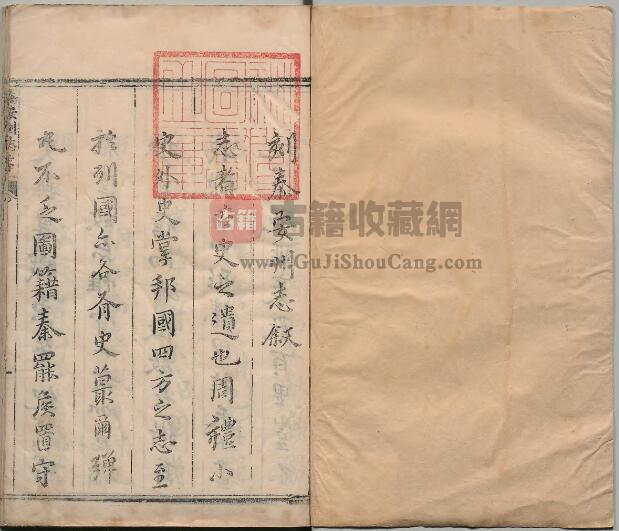 刻泰安州志叙
志者史之遺也周禮小
史外史掌邦國四方之志至
於列國亦各有史蕞爾彈
丸不乏圖籍秦罷侯置守
安州志
古籍
古籍收藏網
www.GuJiShouCang.com